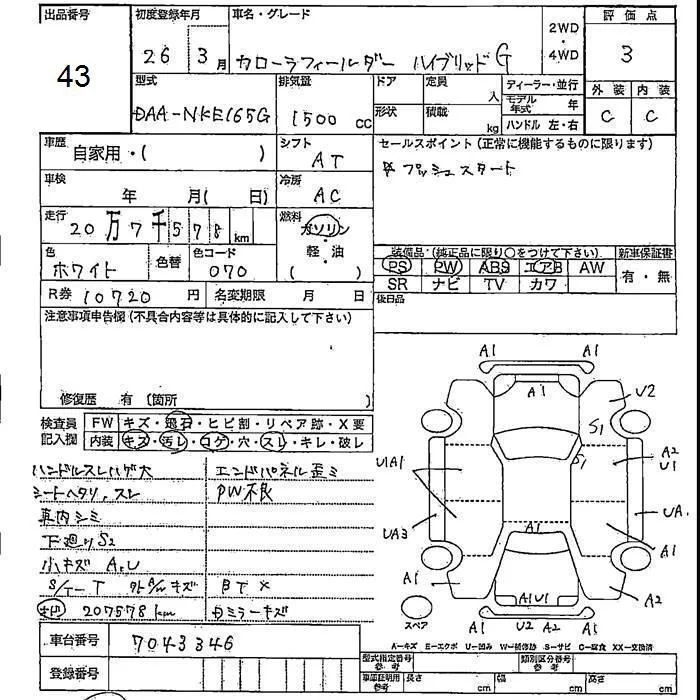 出品番号 初度登録年月 車名・グレード 評価点
43 26 3月 カローラフィールダー ハイブリッドG 2WD・4WD 3
型式 排気量 ドア 定員 人 ディーラー・並行 外装 内装
DAA-NKE165G 1500 CC 形状 積載 kg モデル年式 年 C C
ハンドル 左・右
車歴 自家用・( ) シフト AT セールスポイント(正常に機能するものに限ります)
車検 年 月( 日) 冷房 AC プッシュスタート
走行 20万7千578km 燃料 ガソリン・軽・油( )
色 ホワイト 色替 色コード 070
装備品(純正品に限り○をつけて下さい) 新車保証書
PS PW ABS エアB AW 有・無
SR ナビ TV カワ
R券 10720円 名変期限 月 日 後日品
注意事項申告欄(不具合内容等は具体的に記入して下さい)
修復歴 有(箇所 )
検査員記入欄 FW キズ・飛石・ヒビ割・リペア跡・X要
内装 キズ・汚レ・コゲ・穴・スレ・キレ・破レ
ハンドルスレハゲ大 エンドパネル歪ミ
シートヘタリ、スレ PW不良
車内シミ
下廻りS2
小キズ A,U
S/T-T 外A/Wキズ BTX
207578km カミラーキズ
車台番号 7043346
登録番号
A1 A1
A1 U2
S1
S1 A2 U1
U1A1
UA3 UA1
A1 A1
A1 A1U1 A2
スペア A1 U2 A2 A1
A-キズ E-エクボ U-凹み W-補修跡 S-サビ C-腐食 XX-交換済
型式指定番号 参考 類別区分番号 参考
車庫証明用 参考 長さ cm 幅 cm 高さ cm